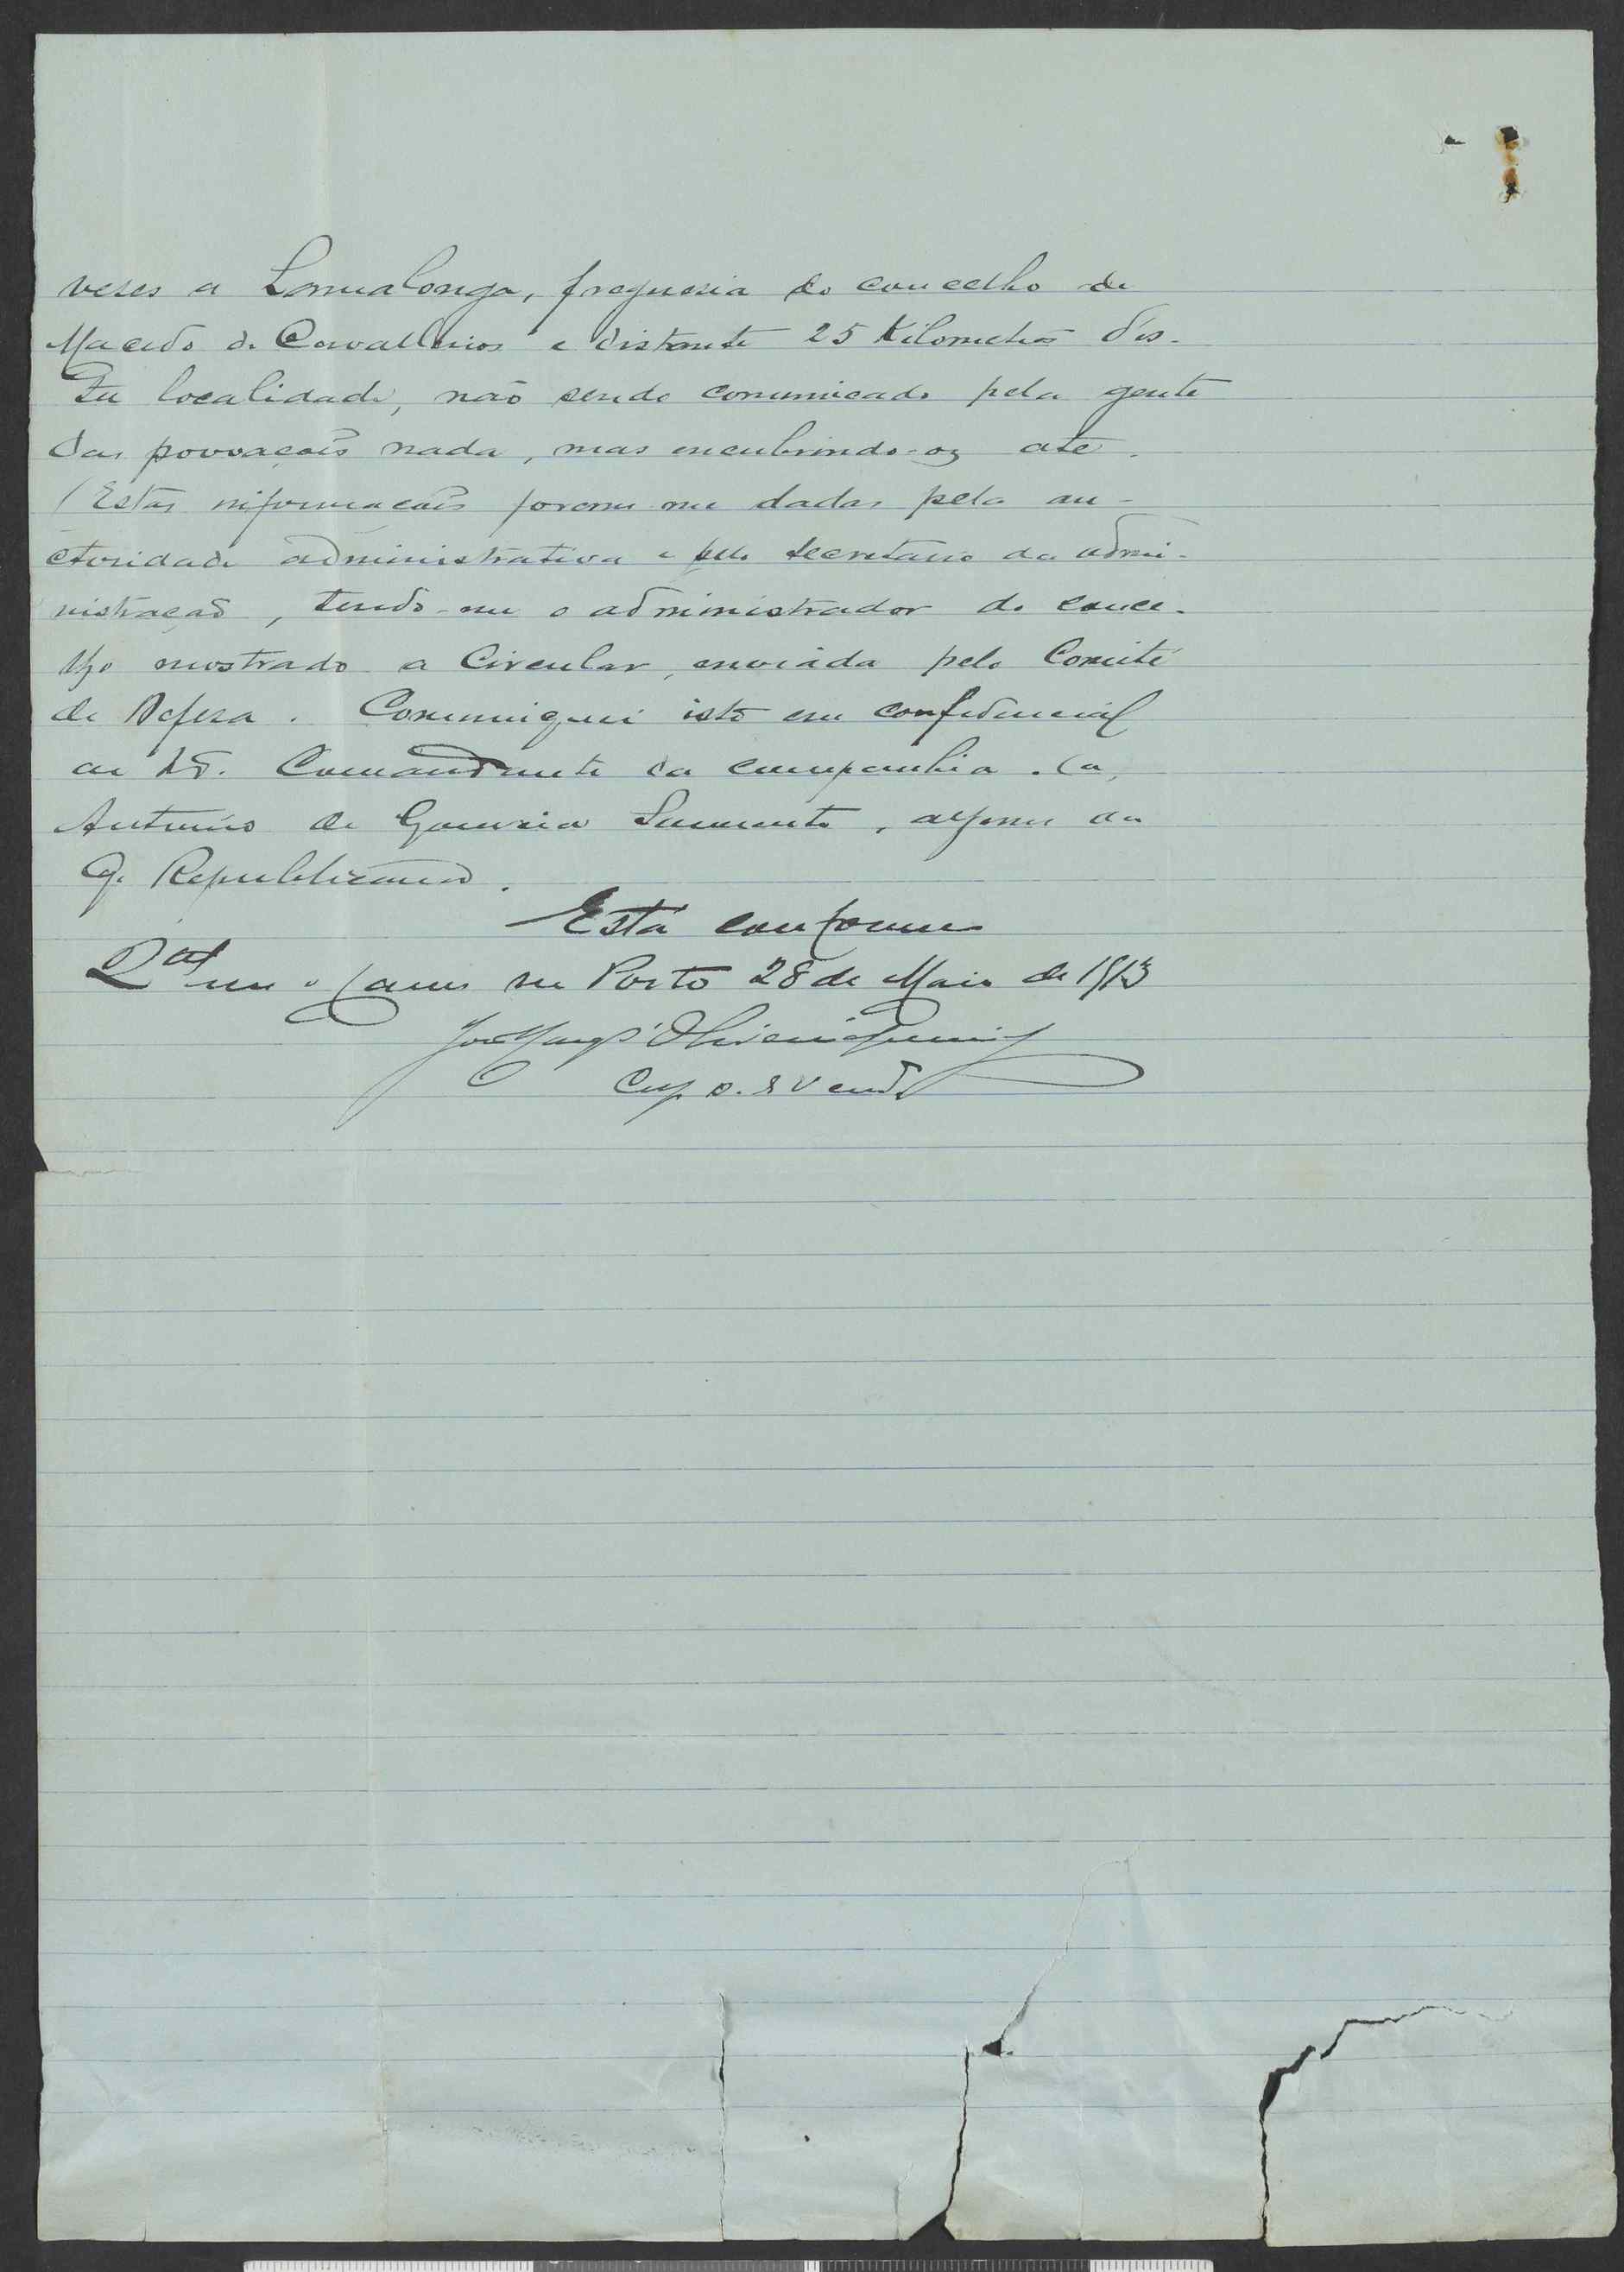 veses a Lamalonga, freguesia do concelho de
Macedo de Cavalleiros e distante 25 Kilometros d'es-
ta localidade, não sendo comunicado pela gente
das povoações nada, mas encubrindo-os até.
Estas informações foram me dadas pela au-
ctoridade administrativa e pelo secretario da admi-
nistração, tendo-me o administrador do conce-
lho mostrado a Circular, enviada pelo Comité
de Defesa. Comuniquei isto em confidencial
ao Comandante da companhia. (a)
Antonio de Gouveia Sarmento, alferes da
G. Republicana.
Está conforme
Qel em no Porto 28 de Maio de 1913
José d'Oliveira
Cap.